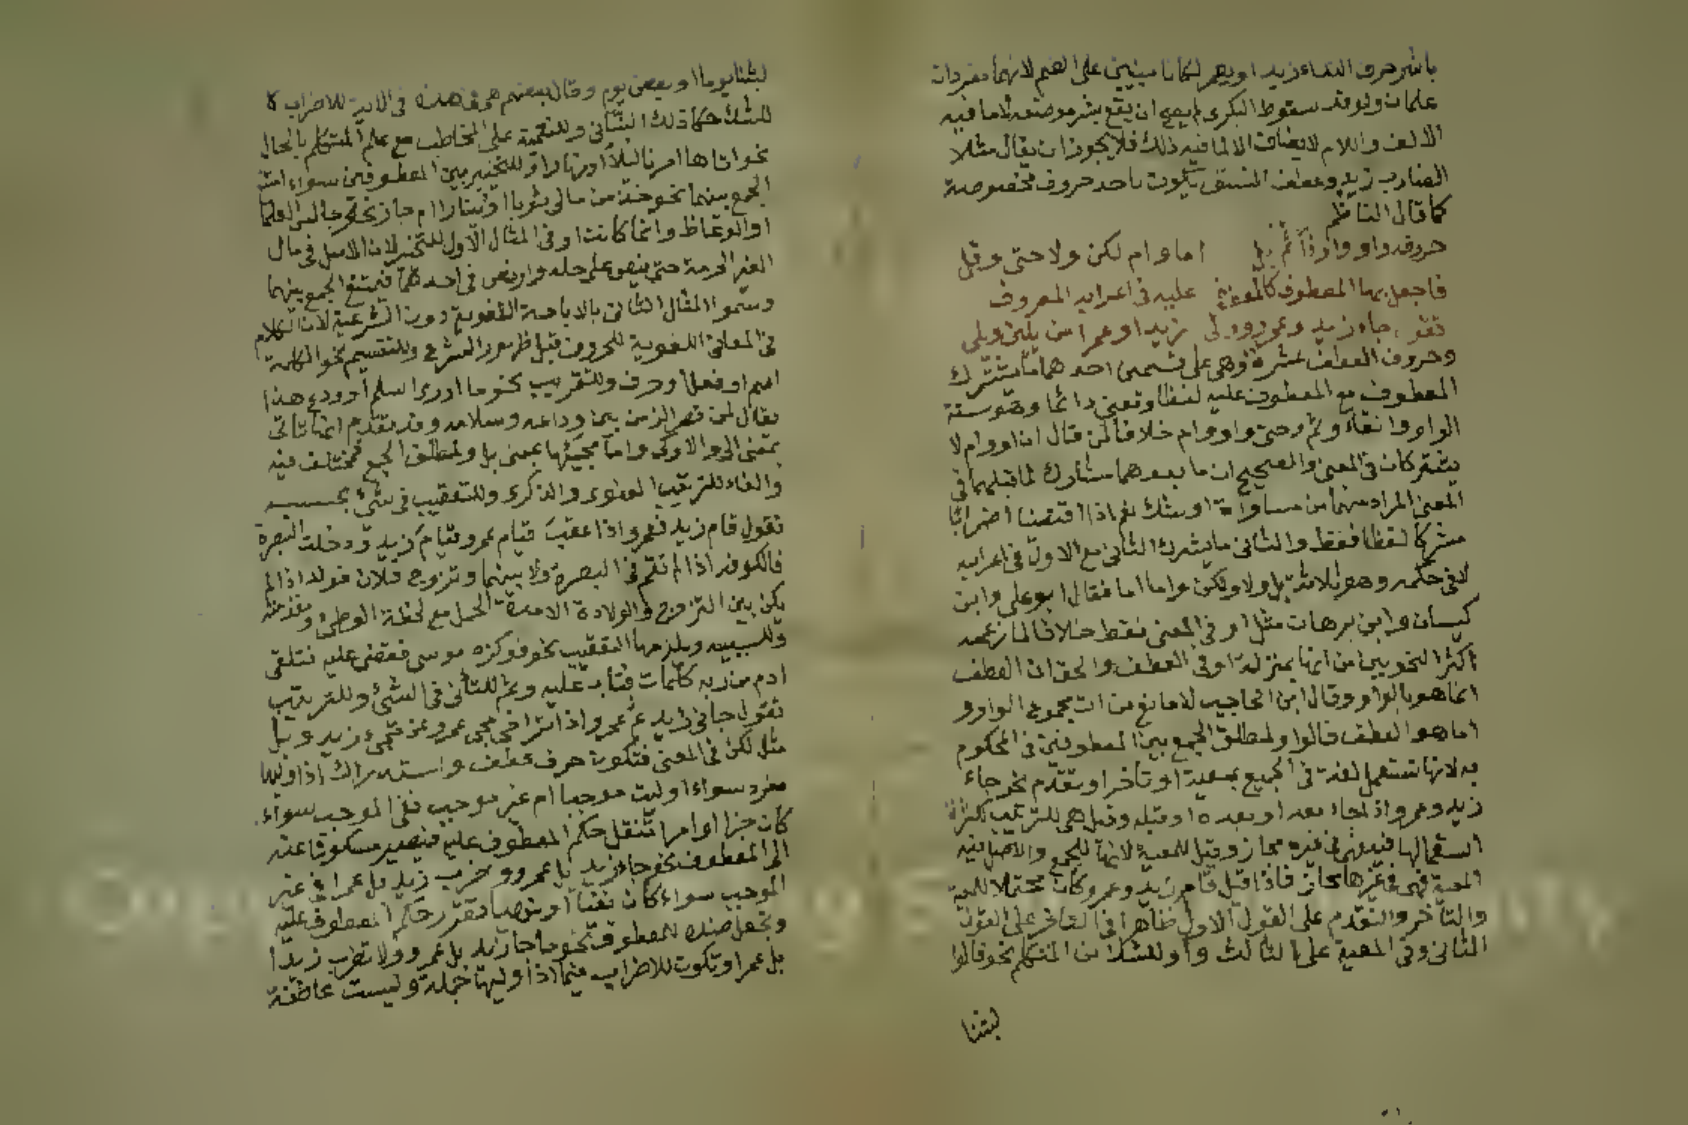 باشر حرف النداء زيد او يعمر لكانا مبنيين على الضم لانهما مفردان
علمان ولو قدر سقوط البكرى لم يصح ان يقع بشر موضعه لما فيه
الالف واللام لا يضاف الا لما فيه ذلك فلا يجوز ان يقال مثلا
الضارب زيد وعطف النسق يكون باحد حروف مخصوصة
كما قال الناظم
حروفه واو واو فا ثم بل اما وام لكن ولا حتى وقل
فاجعل بها المعطوف كالمعطوف عليه فى اعرابه المعروف
تقول جاء زيد وعمرو ولى زيدا وعمرا من يلين ويلى
وحروف العطف عشرة وهى على قسمين احدهما ما يشترك
المعطوف مع المعطوف عليه لفظا ومعنى دائما وهو ستة
الواو والفاء وثم وحتى واو وام خلافا لمن قال ان او وام لا
يشتركان فى المعنى والصحيح ان ما بعدهما مشارك لما قبلهما فى
المعنى المراد منهما من مساواة او شك نعم اذا اقتضيا اضرابا
مشركا لفظا فقط والثانى ما يشرك الثانى مع الاول فى اعرابه
لا فى حكمه وهو ثلاثة بل ولا ولكن واما اما فقال ابو على وابن
كيسان وابن برهان مثل او فى المعنى فقط خلافا لما زعمه
اكثر النحويين من انها بمنزلة او فى العطف والحق ان العطف
انما هو بالواو وقال ابن الحاجب لا مانع من ان مجموع الواو و
اما هو العطف فالواو لمطلق الجمع بين المعطوفين فى المحكوم
به لانها تستعمل لغة فى الجميع بمعية او تاخر او تقدم نحو جاء
زيد وعمرو اذا جاء معه او بعده او قبله وقيل هى للترتيب لكثرة
استعمالها فيه فهى فى غيره مجاز وقيل للمعية لانها للجمع والاصل فيه
المعية فهى فى غيرها مجاز فاذا قيل قام زيد وعمرو كان محتملا للمعية
والتأخر والتقدم على القول الاول ظاهرا فى التاخر على القول
الثانى وفى المعية على الثالث واو للشك من المتكلم نحو قالوا
لبثنا
لبثنا يوما او بعض يوم وقال بعضهم هى فى هذه الاية للاضراب لا
للشك حكاه ذلك وللتعمية على المخاطب مع علم المتكلم بالحال
نحو اتاها امرنا ليلا او نهارا وللتخيير بين المعطوفين سواء امتنع
الجمع بينهما نحو خذ من مالى ثوبا او دينارا ام جاز نحو جالس العلماء
او الوعاظ وانما كانت او فى المثال الاول للتخيير لان الاصل فى مال
الغير الحرمة حتى ينص على حله وانما نص فى احدهما فيمتنع الجمع بينهما
وسموا المثال الثانى بالاباحة اللغوية دون الشرعية لان الكلام
فى المعانى اللغوية للحروف قبل ظهور الشرع وللتقسيم نحو الكلمة
اسم او فعل او حرف وللتقريب نحو ما ادرى اسلم او ودع هذا
يقال لمن قصر الزمن بين وداعه وسلامه وقد تقدم انها تاتى
بمعنى الى والا وكى واما مجيئها بمعنى بل ولمطلق الجمع فمختلف فيه
والفاء للترتيب المعنوى والذكرى وللتعقيب فى شئ بحسبه
تقول قام زيد فعمرو اذا عقب قيام عمرو قيام زيد ودخلت البصرة
فالكوفة اذا لم تقم فى البصرة ولا بينهما وتزوج فلان فولد اذا لم
يكن بين التزوج والولادة الا مدة الحمل مع لحظة الوطئ ومقدمته
وللسببية ويلزمها التعقيب نحو فوكزه موسى فقضى عليه فتلقى
ادم من ربه كلمات فتاب عليه وثم للتأنى فى الشئ وللترتيب
تقول جانى زيد ثم عمرو اذا تراخى مجئ عمرو عن مجئ زيد وبل
مثل لكن فى المعنى فتكون حرف عطف واستدراك اذا وليها
مفرد سواء اوليت موجبا ام غير موجب ففى الموجب سواء
كان خبرا او امرا تنقل حكم المعطوف عليه فيصير مسكوتا عنه
الى المعطوف نحو جاء زيد بل عمرو ونحو ضرب زيد بل عمرا وفى غير
الموجب سواء كان نفيا او نهيا تقرر حكم المعطوف عليه
وتجعل ضده للمعطوف نحو ما جا زيد بل عمرو ولا تضرب زيدا
بل عمرا وتكون للاضراب فيما اذا وليها جملة وليست عاطفة